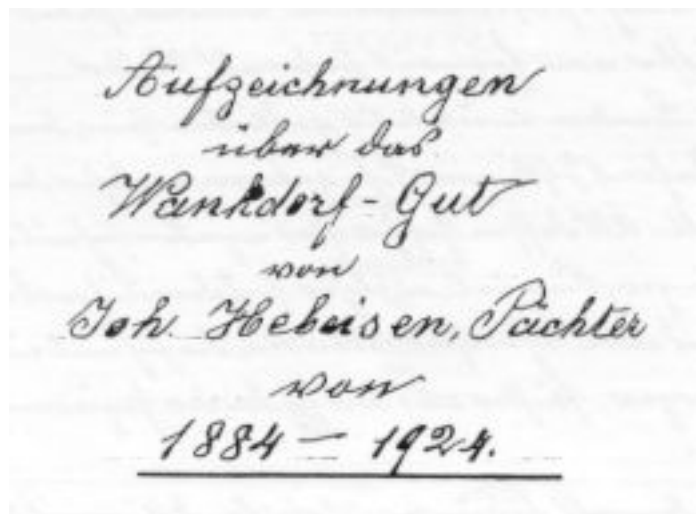 Aufzeichnungen
über das
Wankdorf-Gut
von
Joh. Hebeisen, Pächter
von
1884 – 1924.